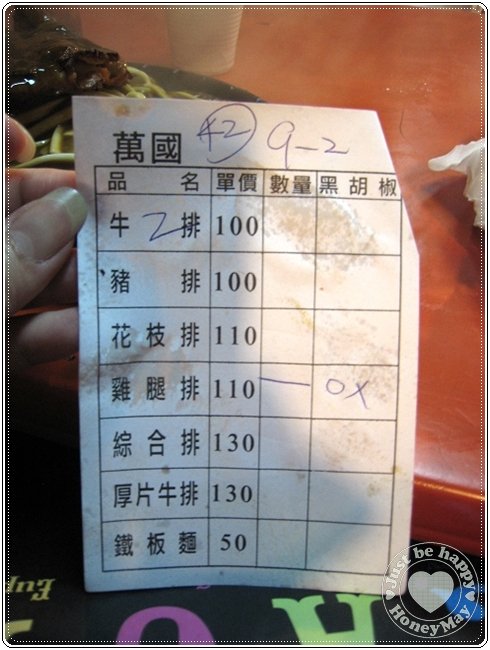 萬國 42 9-2
品名 單價 數量 黑胡椒
牛乙排 100
豬排 100
花枝排 110
雞腿排 110 一 OX
綜合排 130
厚片牛排 130
鐵板麵 50
Just be happy
HoneyMay